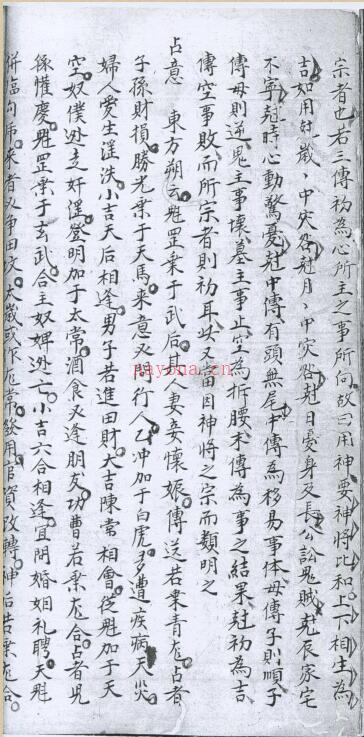 宗者也若三傳初為心所主之事所向故曰用神要神將比和上下相生為
吉如用尅歲、中災咎尅月、中災咎尅日妻身及長公訟鬼賊尅辰家宅
不寧尅時心動驚憂尅中傳有頭無尾中傳為移易事体母傳子則順子
傳母則逆鬼主事壞墓主事止空為折腰末傳為事之結果尅初為吉
傳空事敗而所宗者則初耳此又當因神將之宗而類明之
占意 東方朔云魁罡乗于武后其人妻妾懷娠傳送若乗青龙占者
子孫財損勝光乗于天馬来意必問行人乙冲加于白虎多遭疾病天災
婦人愛生淫泆小吉天后相逢男子若進田財大吉陳常相會從魁加于天
空奴僕逃走奸淫登明加于太常酒食必逢朋友功曹若乗龙合占者児
孫懽慶魁罡乗于玄武合主奴婢逃亡小吉六合相逢宜問婚姻礼聘天魁
併臨勾乕来者必争田土太歲或作龙常發用官資改轉神后若乗龙合
nayona.cn